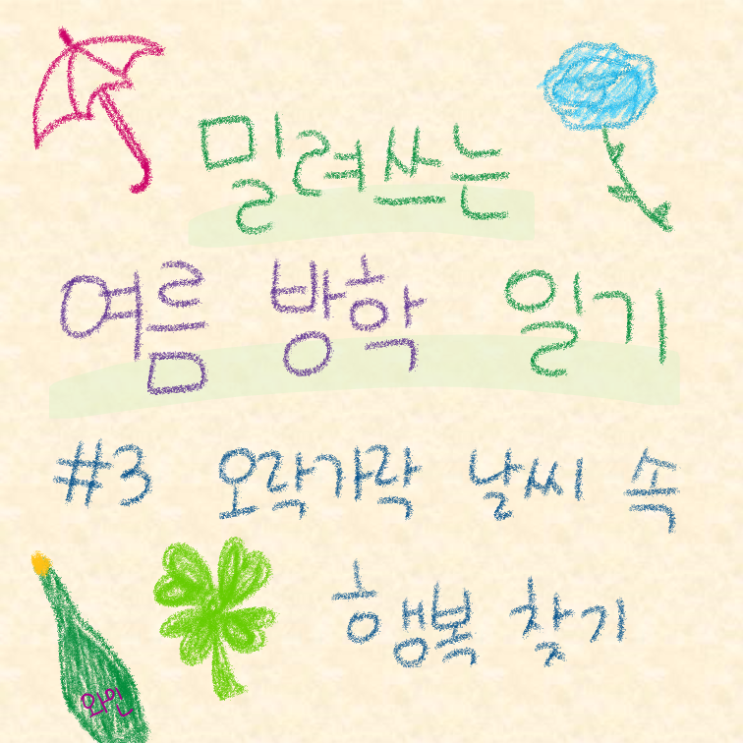 밀려쓰는
여름 방학 일기
#3 오락가락 날씨 속
행복 찾기
와인